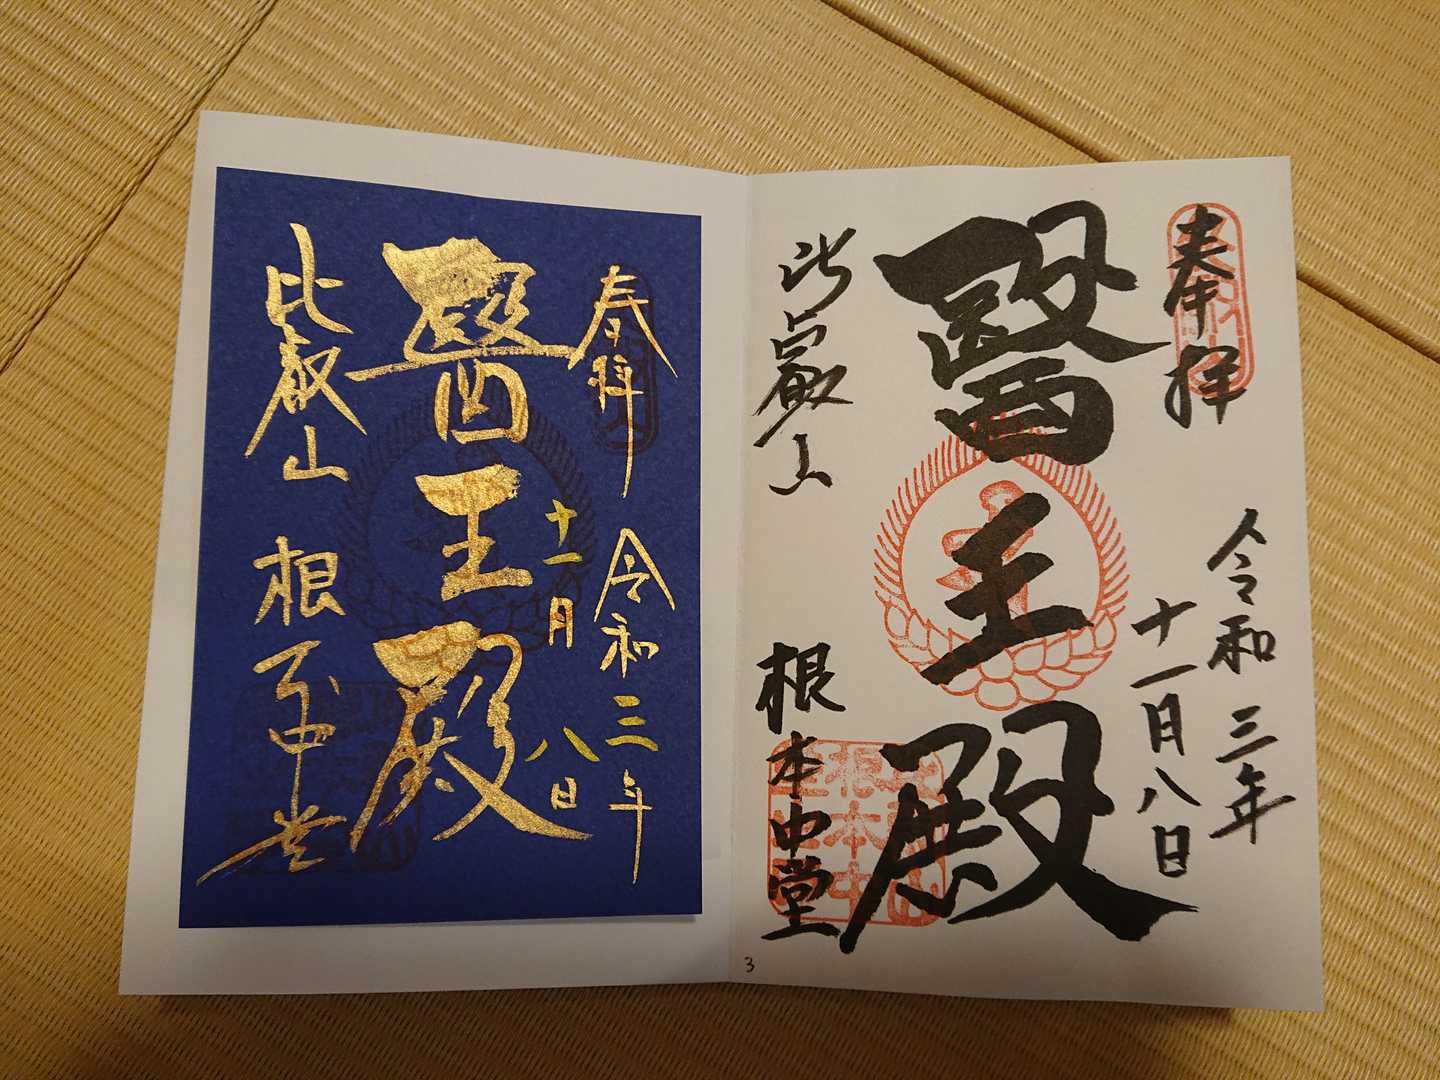 奉拝
令和三年
十一月八日
醫王殿
比叡山
根本中堂
奉拝
令和三年
十一月八日
醫王殿
比叡山
根本中堂
3